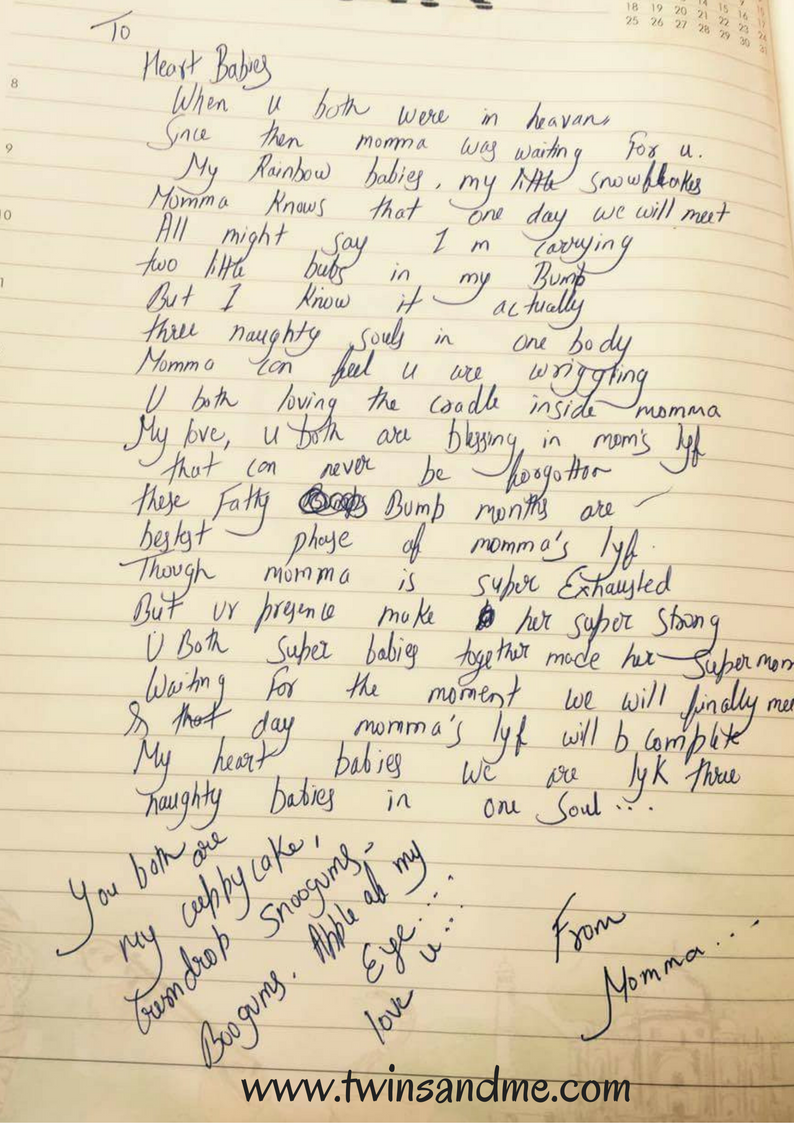 18 19 20 21 22 23 24
25 26 27 28 29 30 31
To
Heart Babies
8
When u both were in heavan,,
Since then momma was waiting For u.
9
My Rainbow babies, my little snowflakes
Momma Knows that one day we will meet
10
All might say I m carrying
two little bubs in my Bump
But I Know it actually
three naughty souls in one body
Momma can feel u are wriggling
U both loving the cradle inside momma
My love, u both are blessing in mom's lyf
that can never be forgotton
these Fatty Bump months are
bestest phase of momma's lyf.
Though momma is super Exhausted
But ur presence make her super strong
U Both super babies together made her Supermom
Waiting For the moment we will finally
& that day momma's lyf will b complete
My heart babies we are lyk three
naughty babies in one Soul ...
You both are
my cuppycake,
Snoogums-
Boogums. Apple of my
Eye....
love u...
From
Momma...
www.twinsandme.com